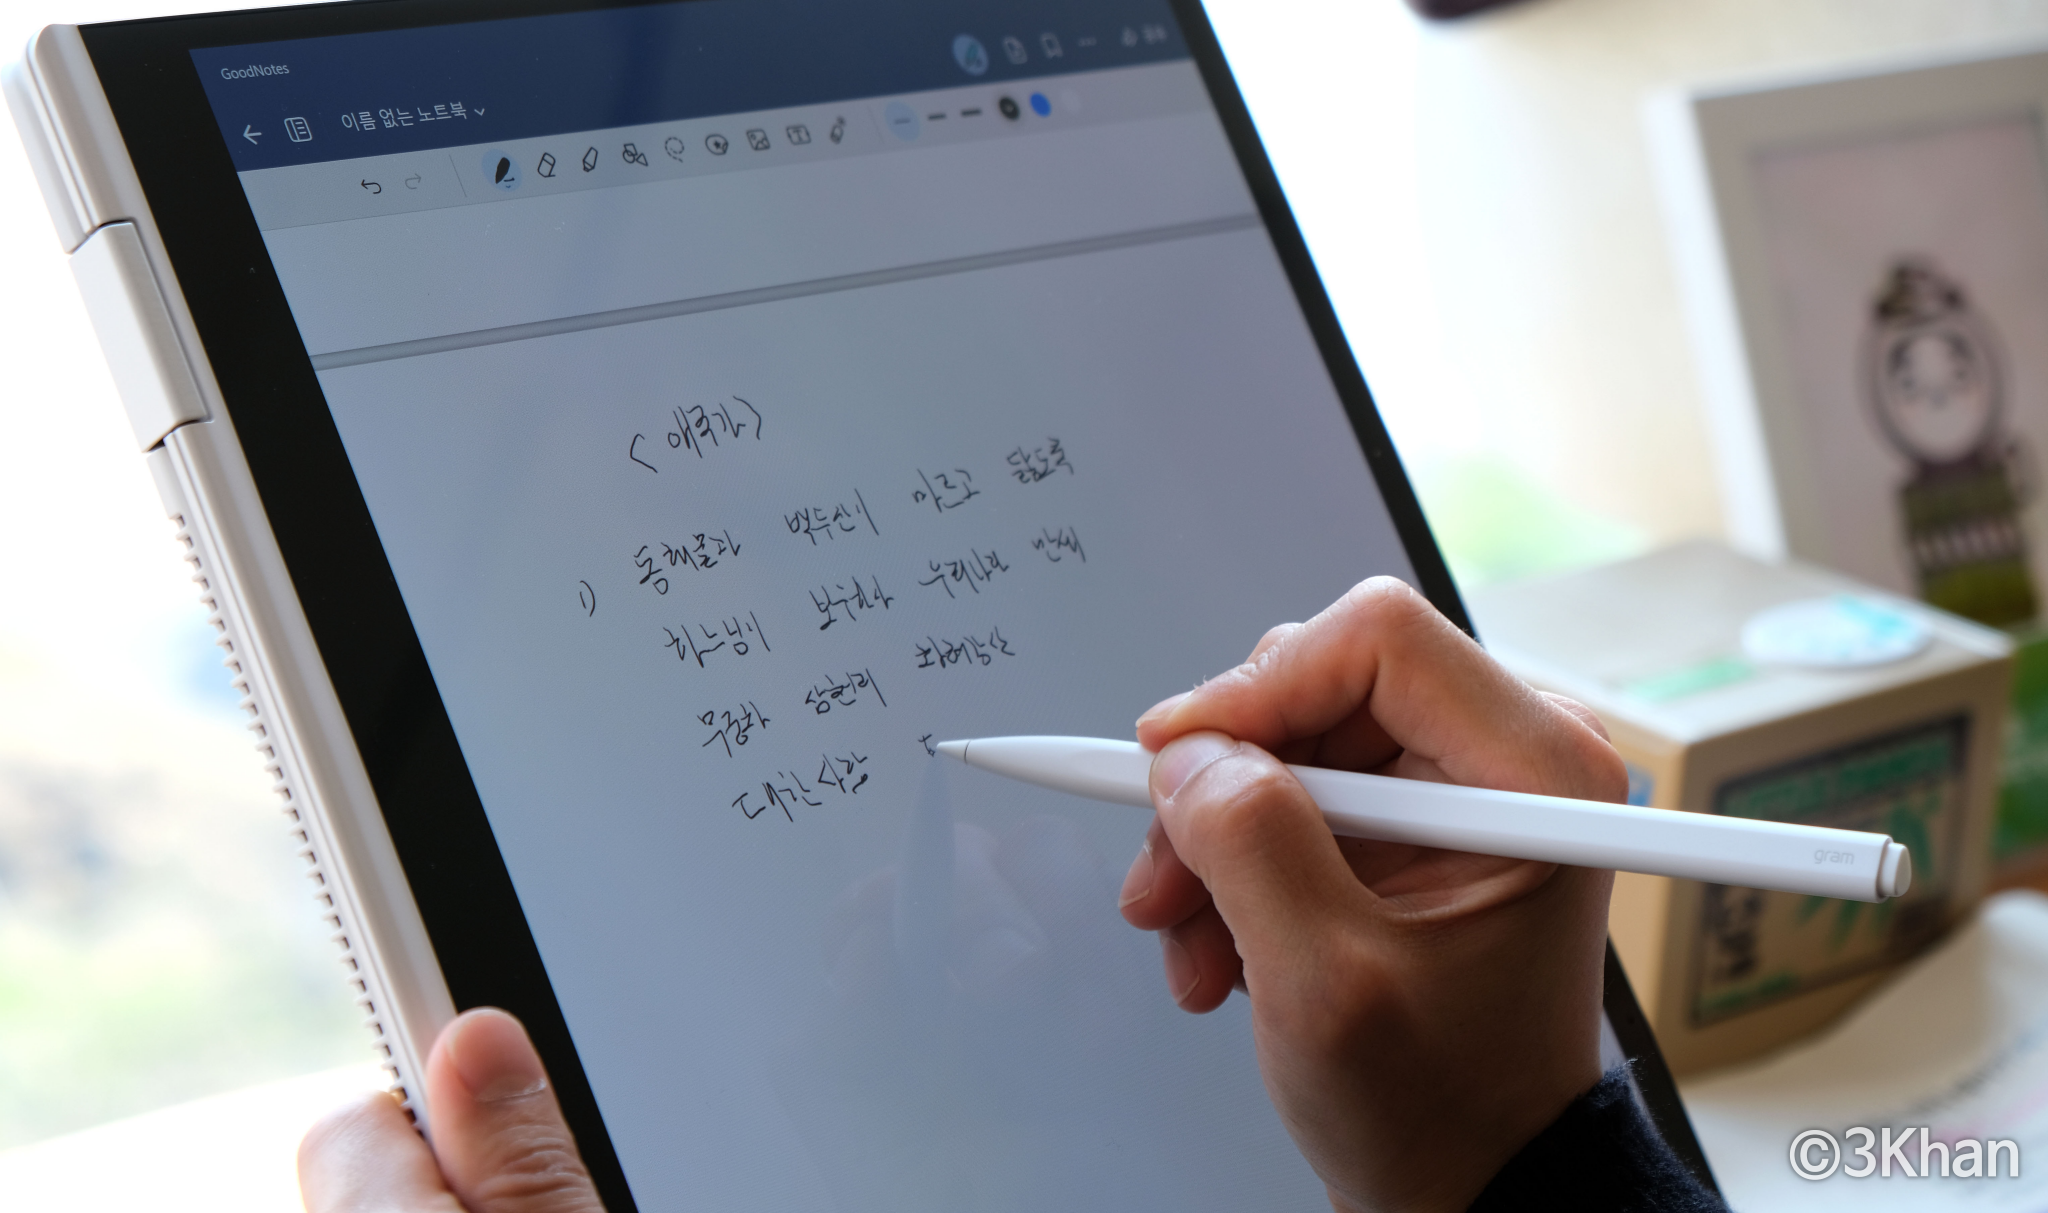 GoodNotes
이름 없는 노트북
<애국가>
1) 동해물과 백두산이 마르고 닳도록
하느님이 보우하사 우리나라 만세
무궁화 삼천리 화려강산
대한사람
gram
©3Khan